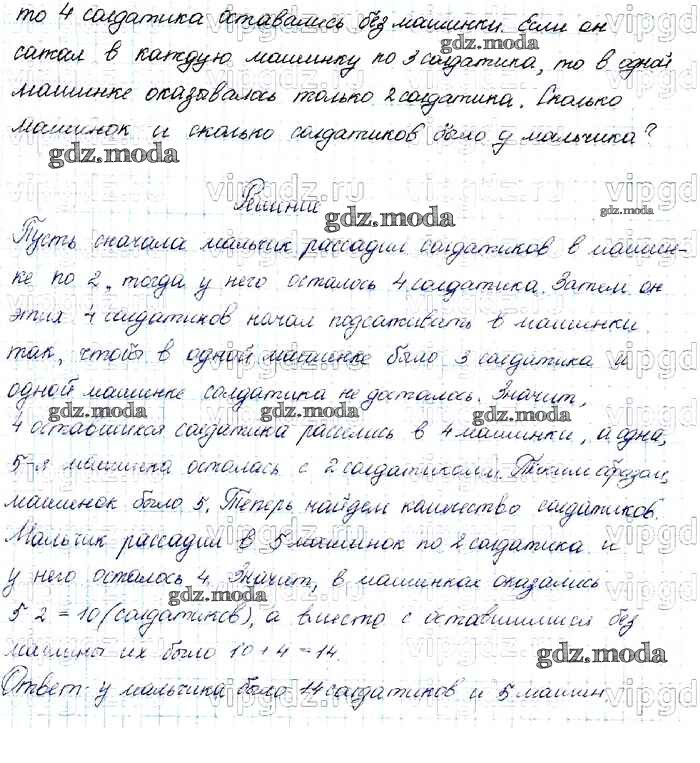 то 4 солдатика оставались без машинки. Если он
сажал в каждую машинку по 3 солдатика, то в одной
машинке оказывалось только 2 солдатика. Сколько
машинок и сколько солдатиков было у мальчика?
Решение
Пусть сначала мальчик рассадил солдатиков в машин-
ке по 2, тогда у него осталось 4 солдатика. Затем он
этих 4 солдатиков начал подсаживать в машинки
так, чтобы в одной машинке было 3 солдатика и
одной машинке солдатика не досталось. Значит,
4 оставшихся солдатика расселись в 4 машинки, а одна,
5-я машинка осталась с 2 солдатиками. Таким образом,
машинок было 5. Теперь найдем количество солдатиков.
Мальчик рассадил в 5 машинок по 2 солдатика и
у него осталось 4. Значит, в машинках оказались
5·2 = 10 (солдатиков), а вместе с оставшимися без
машины их было 10 + 4 = 14.
Ответ: у мальчика было 14 солдатиков и 5 машин
gdz.moda
gdz.moda
gdz.moda
gdz.moda
gdz.moda
gdz.moda
gdz.moda
gdz.moda
gdz.moda
vipgdz.ru